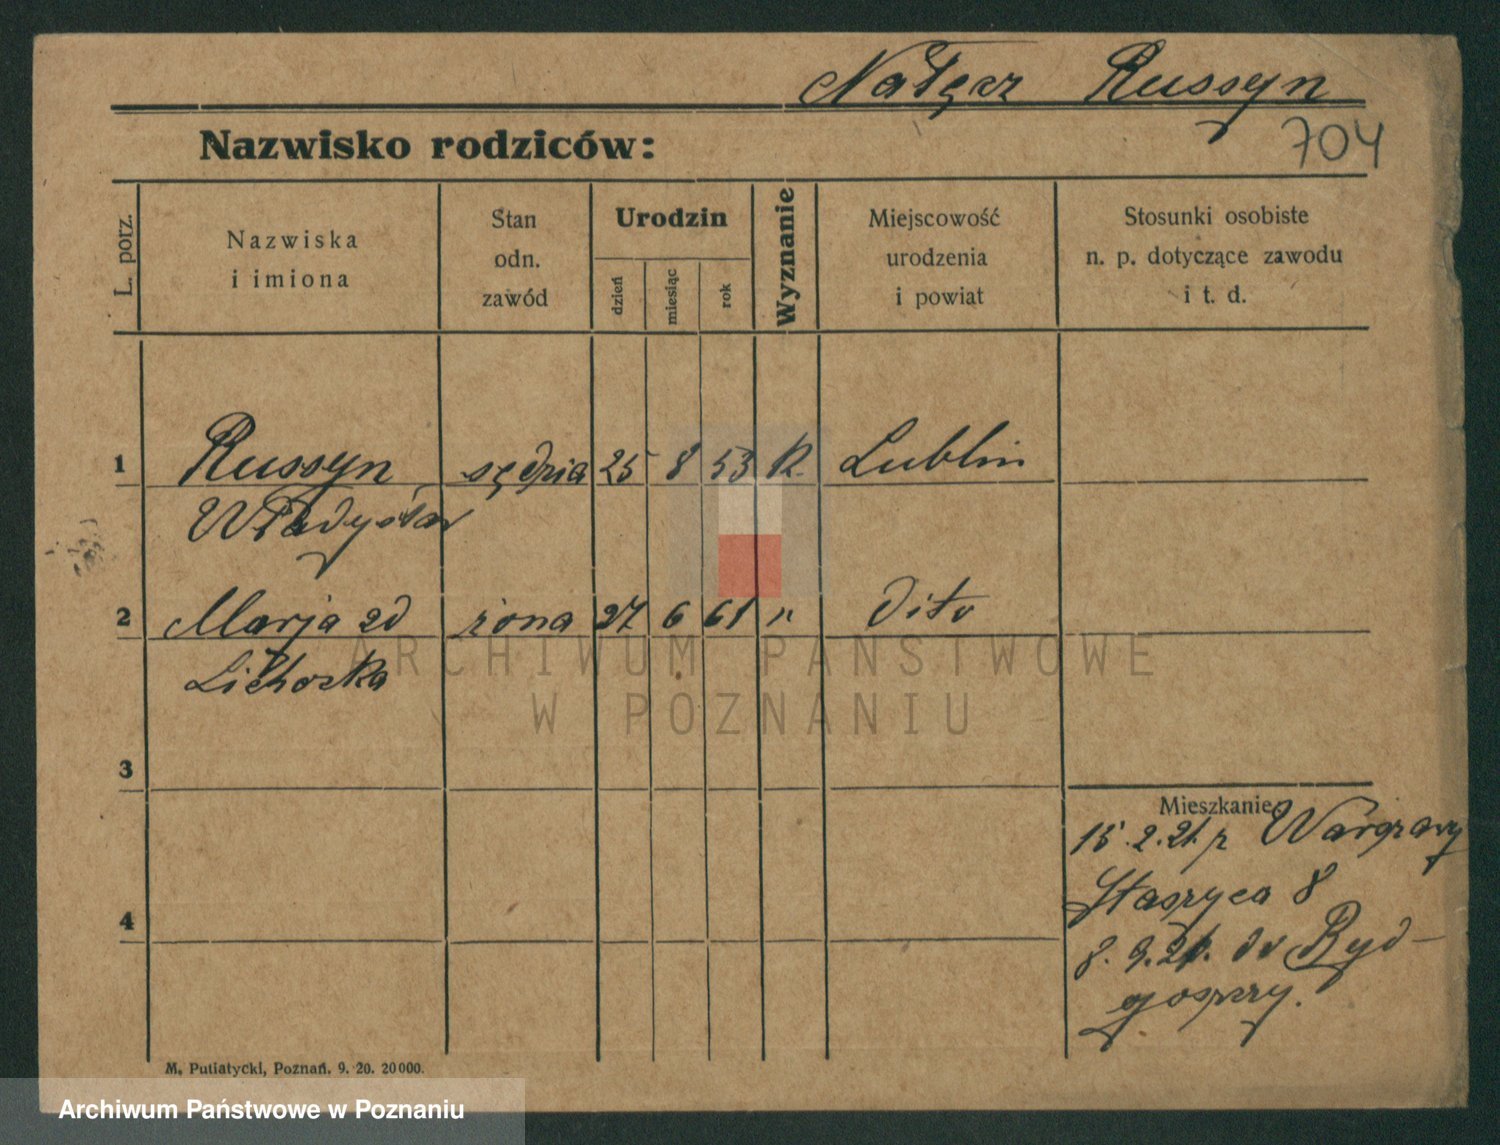 Nałęcz Russyn
704
Nazwisko rodziców:
L. porz.
Nazwiska
i imiona
Stan
odn.
zawód
Urodzin
dzień
miesiąc
rok
Wyznanie
Miejscowość
urodzenia
i powiat
Stosunki osobiste
n. p. dotyczące zawodu
i t. d.
1 Russyn sędzia 25 8 53 R. Lublin
Władysław
2 Marja zd żona 27 6 61 " dito
3
Mieszkanie
15.2.21. z Warszawy
Staszyca 8
4
8.9.21. do Byd-
goszczy.
M. Putiatycki, Poznań. 9. 20. 20000.
ARCHIWUM PAŃSTWOWE
W POZNANIU
Archiwum Państwowe w Poznaniu